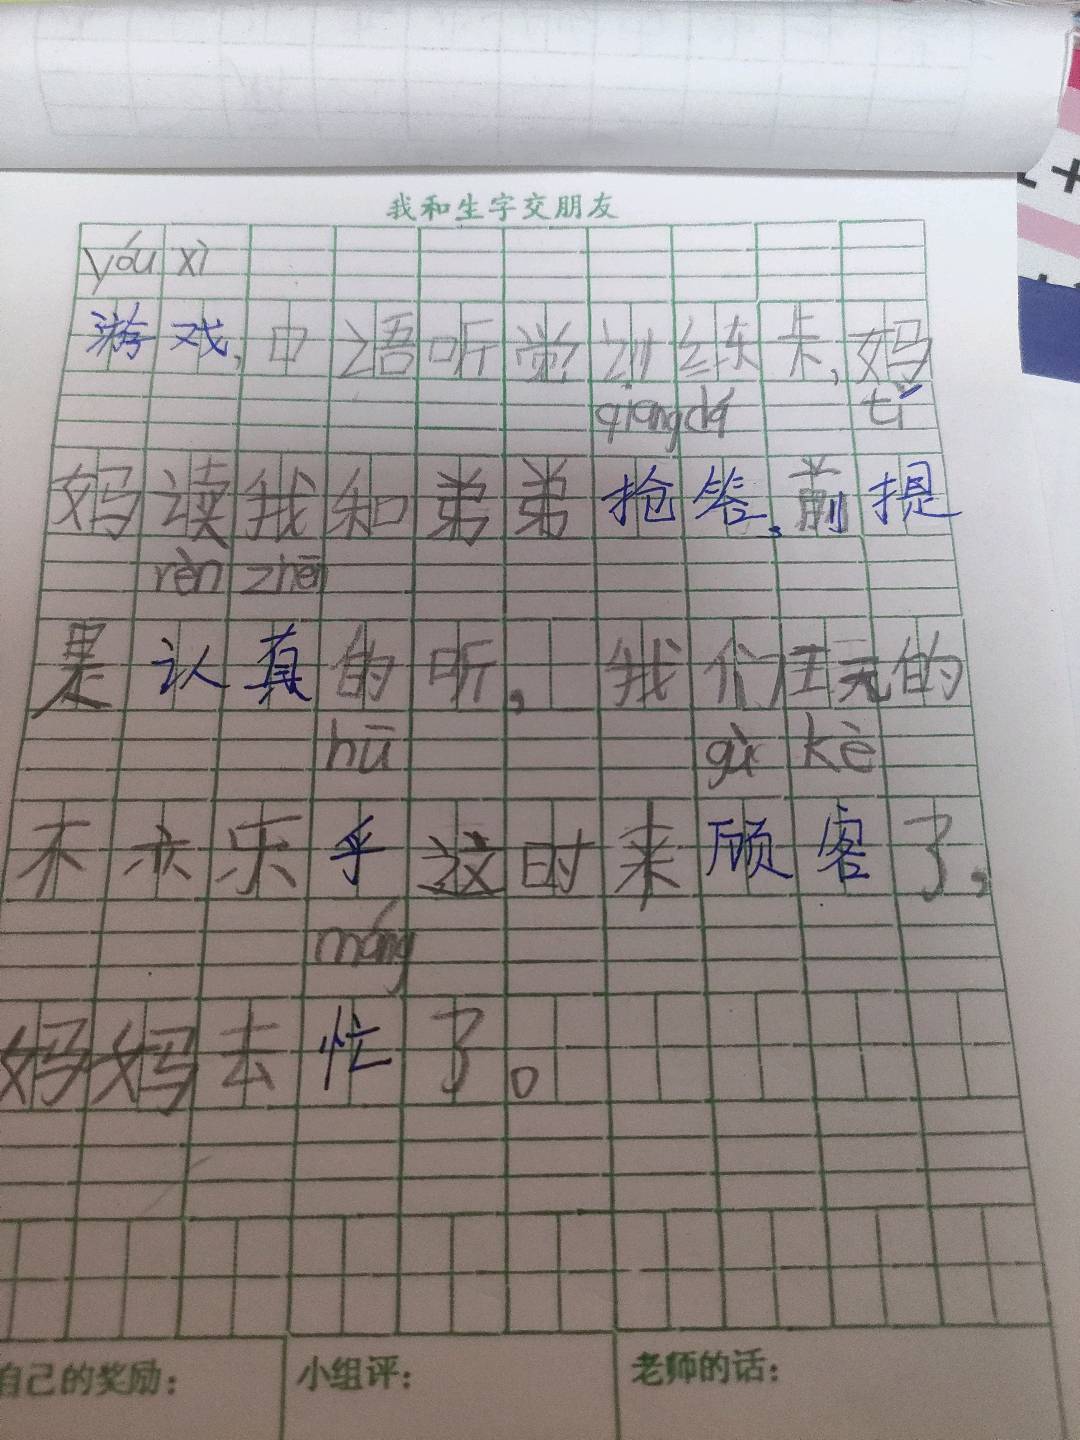 我和生字交朋友
yóu xì
游戏,口语听觉训练卡,妈
qiang dá tí
妈读我和弟弟抢答,前提
rèn zhēn
是认真的听,我们玩的
hū gù kè
不亦乐乎这时来顾客了,
máng
妈妈去忙了。
自己的奖励:
小组评:
老师的话: